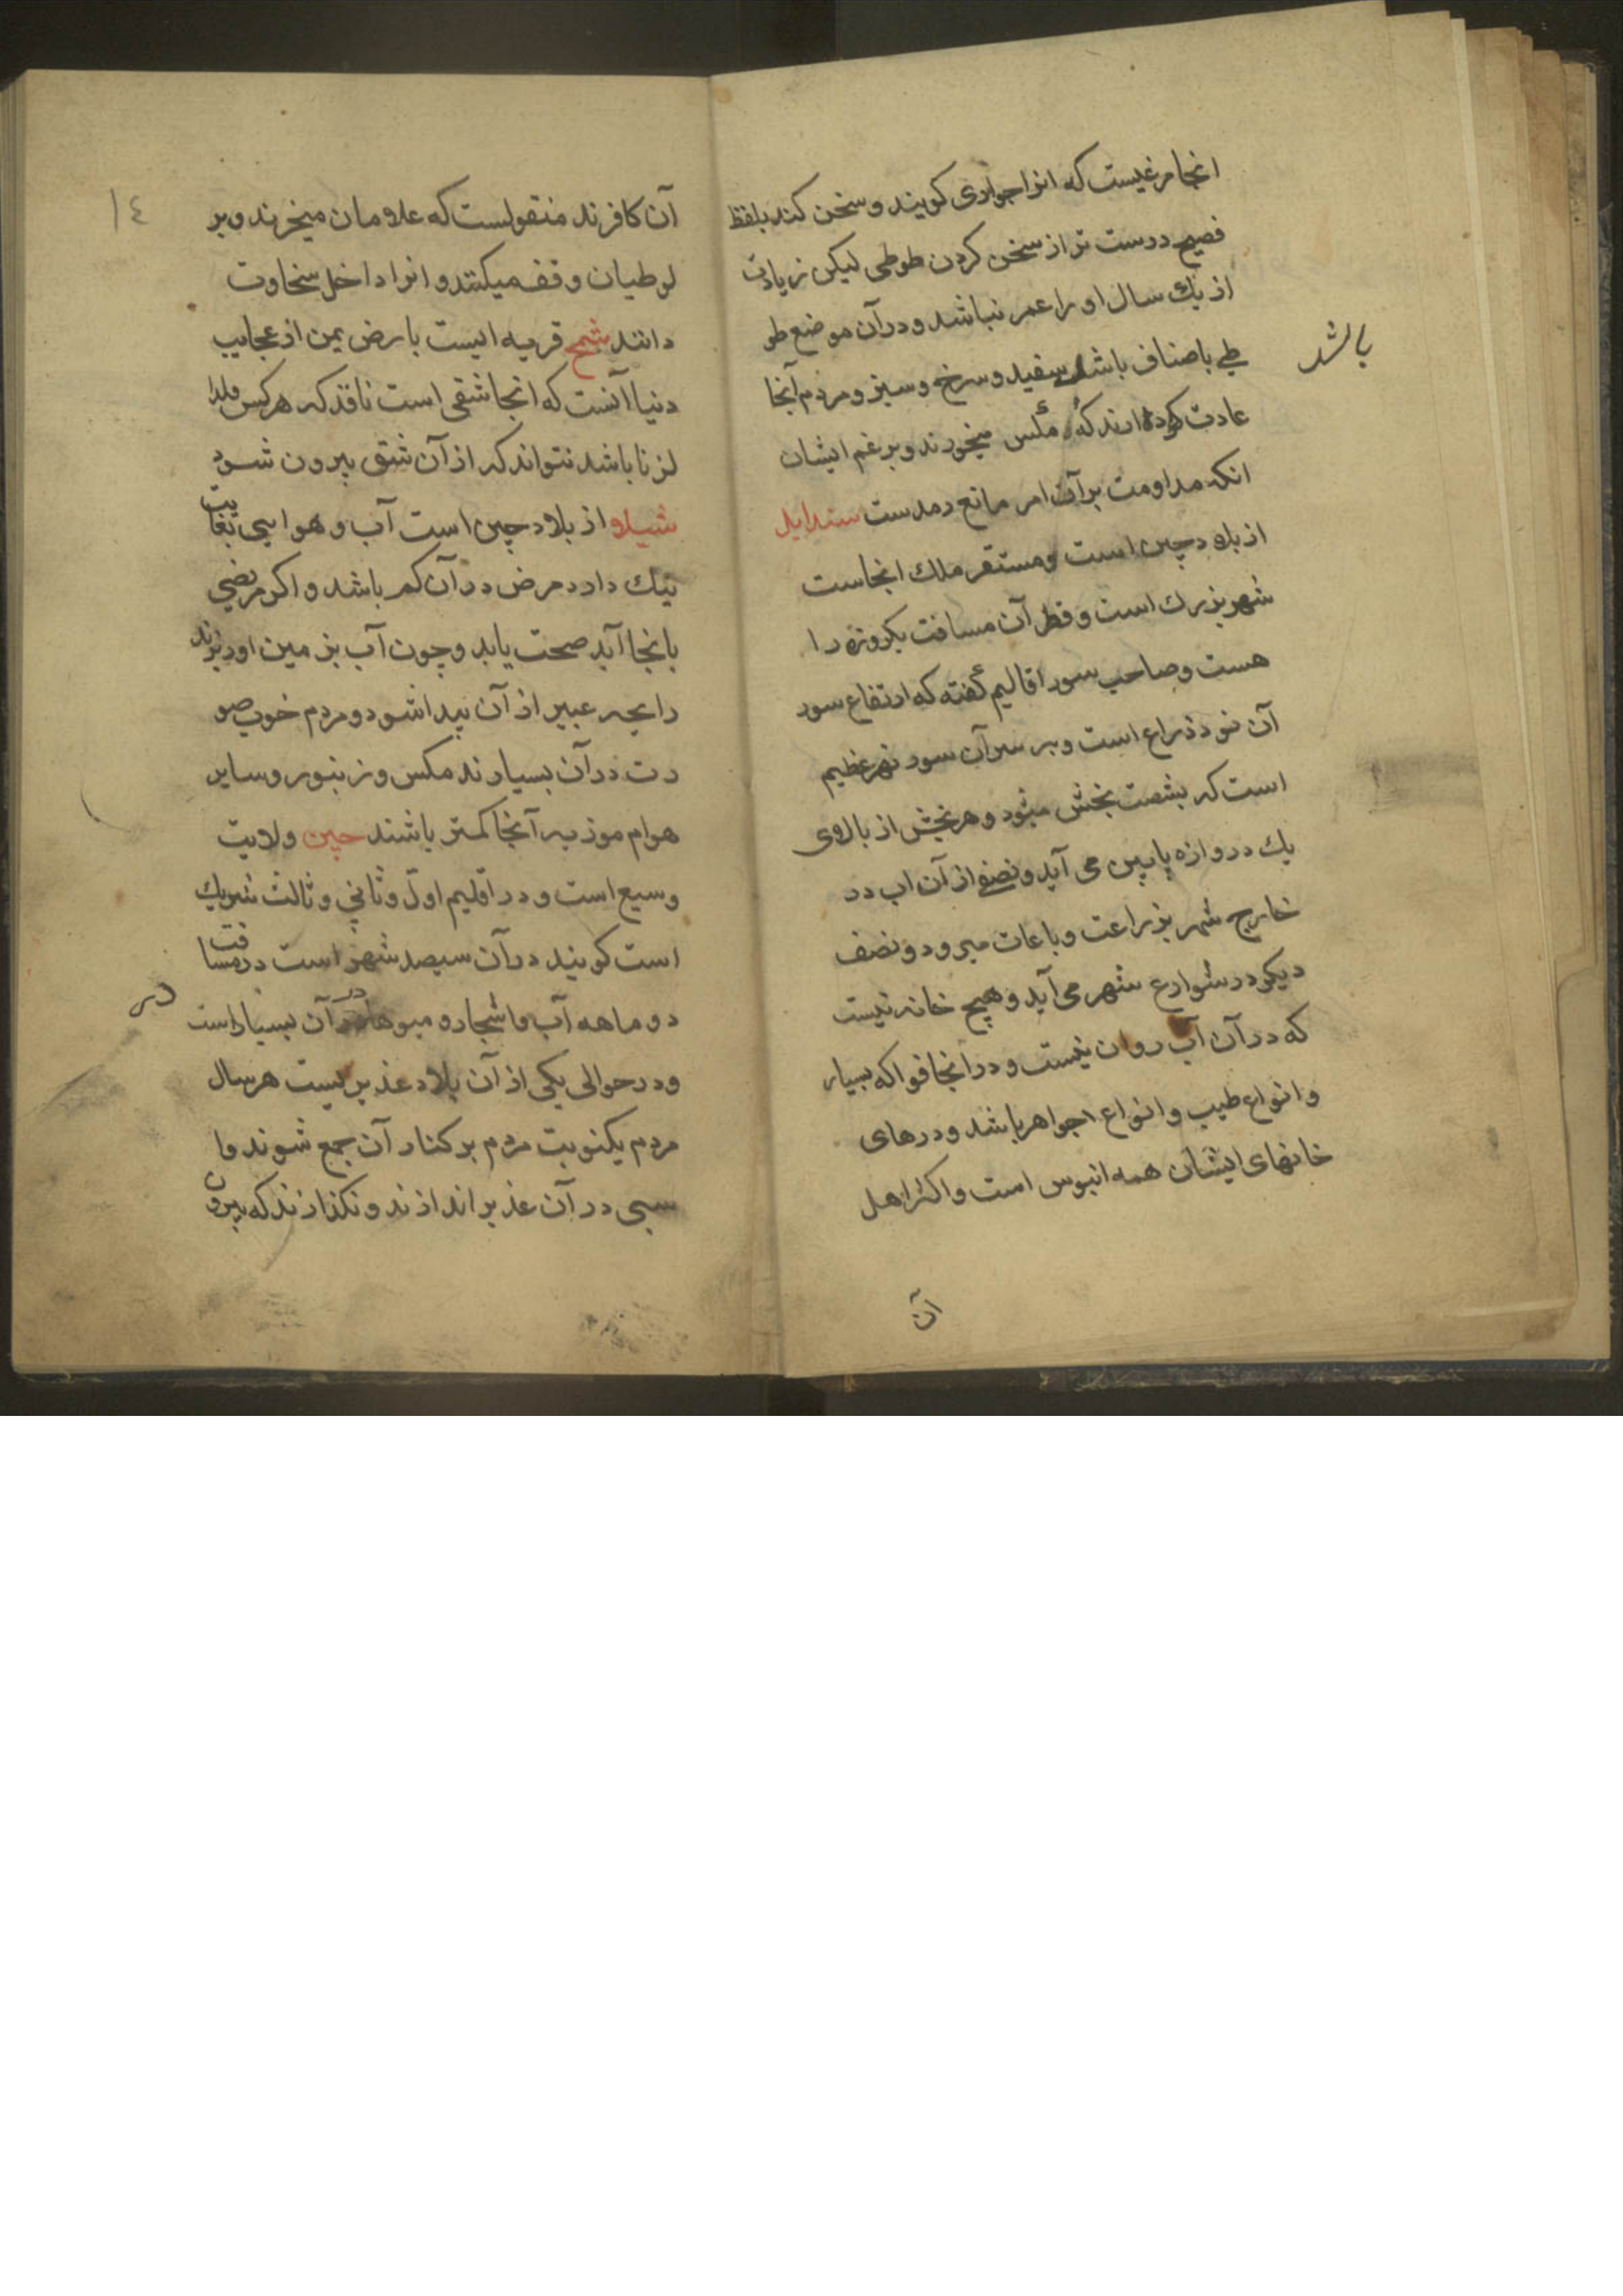 انجا مرغیست که انرا جواری کویند و سخن کند بلفظ
فصیح درست تر از سخن کردن طوطی لیکن زیادت
از یك سال او را عمر نباشد و در آن موضع طو
طی باصناف باشد سفید و سرخ و سبز و مردم آنجا
بالشد
عادت کرده اند که مکس میخورند و بر غم ایشان
انکه مداومت بر آن امر مانع رمدست سندابل
از بلاد چین است و مستقر ملك انجاست
شهر بزرك است و قطر آن مسافت یکروزه را
هست و صاحب سور اقالیم گفته که ارتفاع سور
آن نود ذراع است و بر سر آن سور نهر عظیم
است که بشصت بخش میشود و هر بخش از بالاوی
یك دروازه پایین می آید و نصفی از آن اب در
خارج شهر بزراعت و باغات میرود و نصف
دیکر در شوارع شهر می آید و هیچ خانه نیست
که در آن آب روان نیست و در انجا فواکه بسیار
و انواع طیب و انواع جواهر باشد و درهای
خانهای ایشان همه ابنوس است و اکثر اهل
آن
١٤
آن کافرند منقولست که علامان میخرند و بر
لوطیان وقف میکنند و انرا داخل سخاوت
دانند شبح قریه ایست بارض یمن از عجایب
دنیا آنست که انجا شقی است نافذ که هر کس ولد ا
لزنا باشد نتواند که از آن شق بیرون شود
شیلا از بلاد چین است آب و هوایی بغایت
نیك دارد مرض در آن کم باشد و اکر مریضی
بانجا آید صحت یابد و چون آب بزمین او ریزند
رایحه عبیر از آن پیدا شود و مردم خوب صو
رت در آن بسیارند مکس و زنبور و سایر
هوام موذیه آنجا کمتر باشند چین ولایت
وسیع است و در اقلیم اول و ثانی و ثالث شریك
است کویند در آن سیصد شهر است در مسافت
دو ماهه آب و اشجار و میوها در آن بسیار است
و در حوالی یکی از آن بلاد غدیریست هر سال
مردم یکنوبت مردم بر کنار آن جمع شوند و ا
سبی در آن غدیر اندازند و نکذارند که بیرون